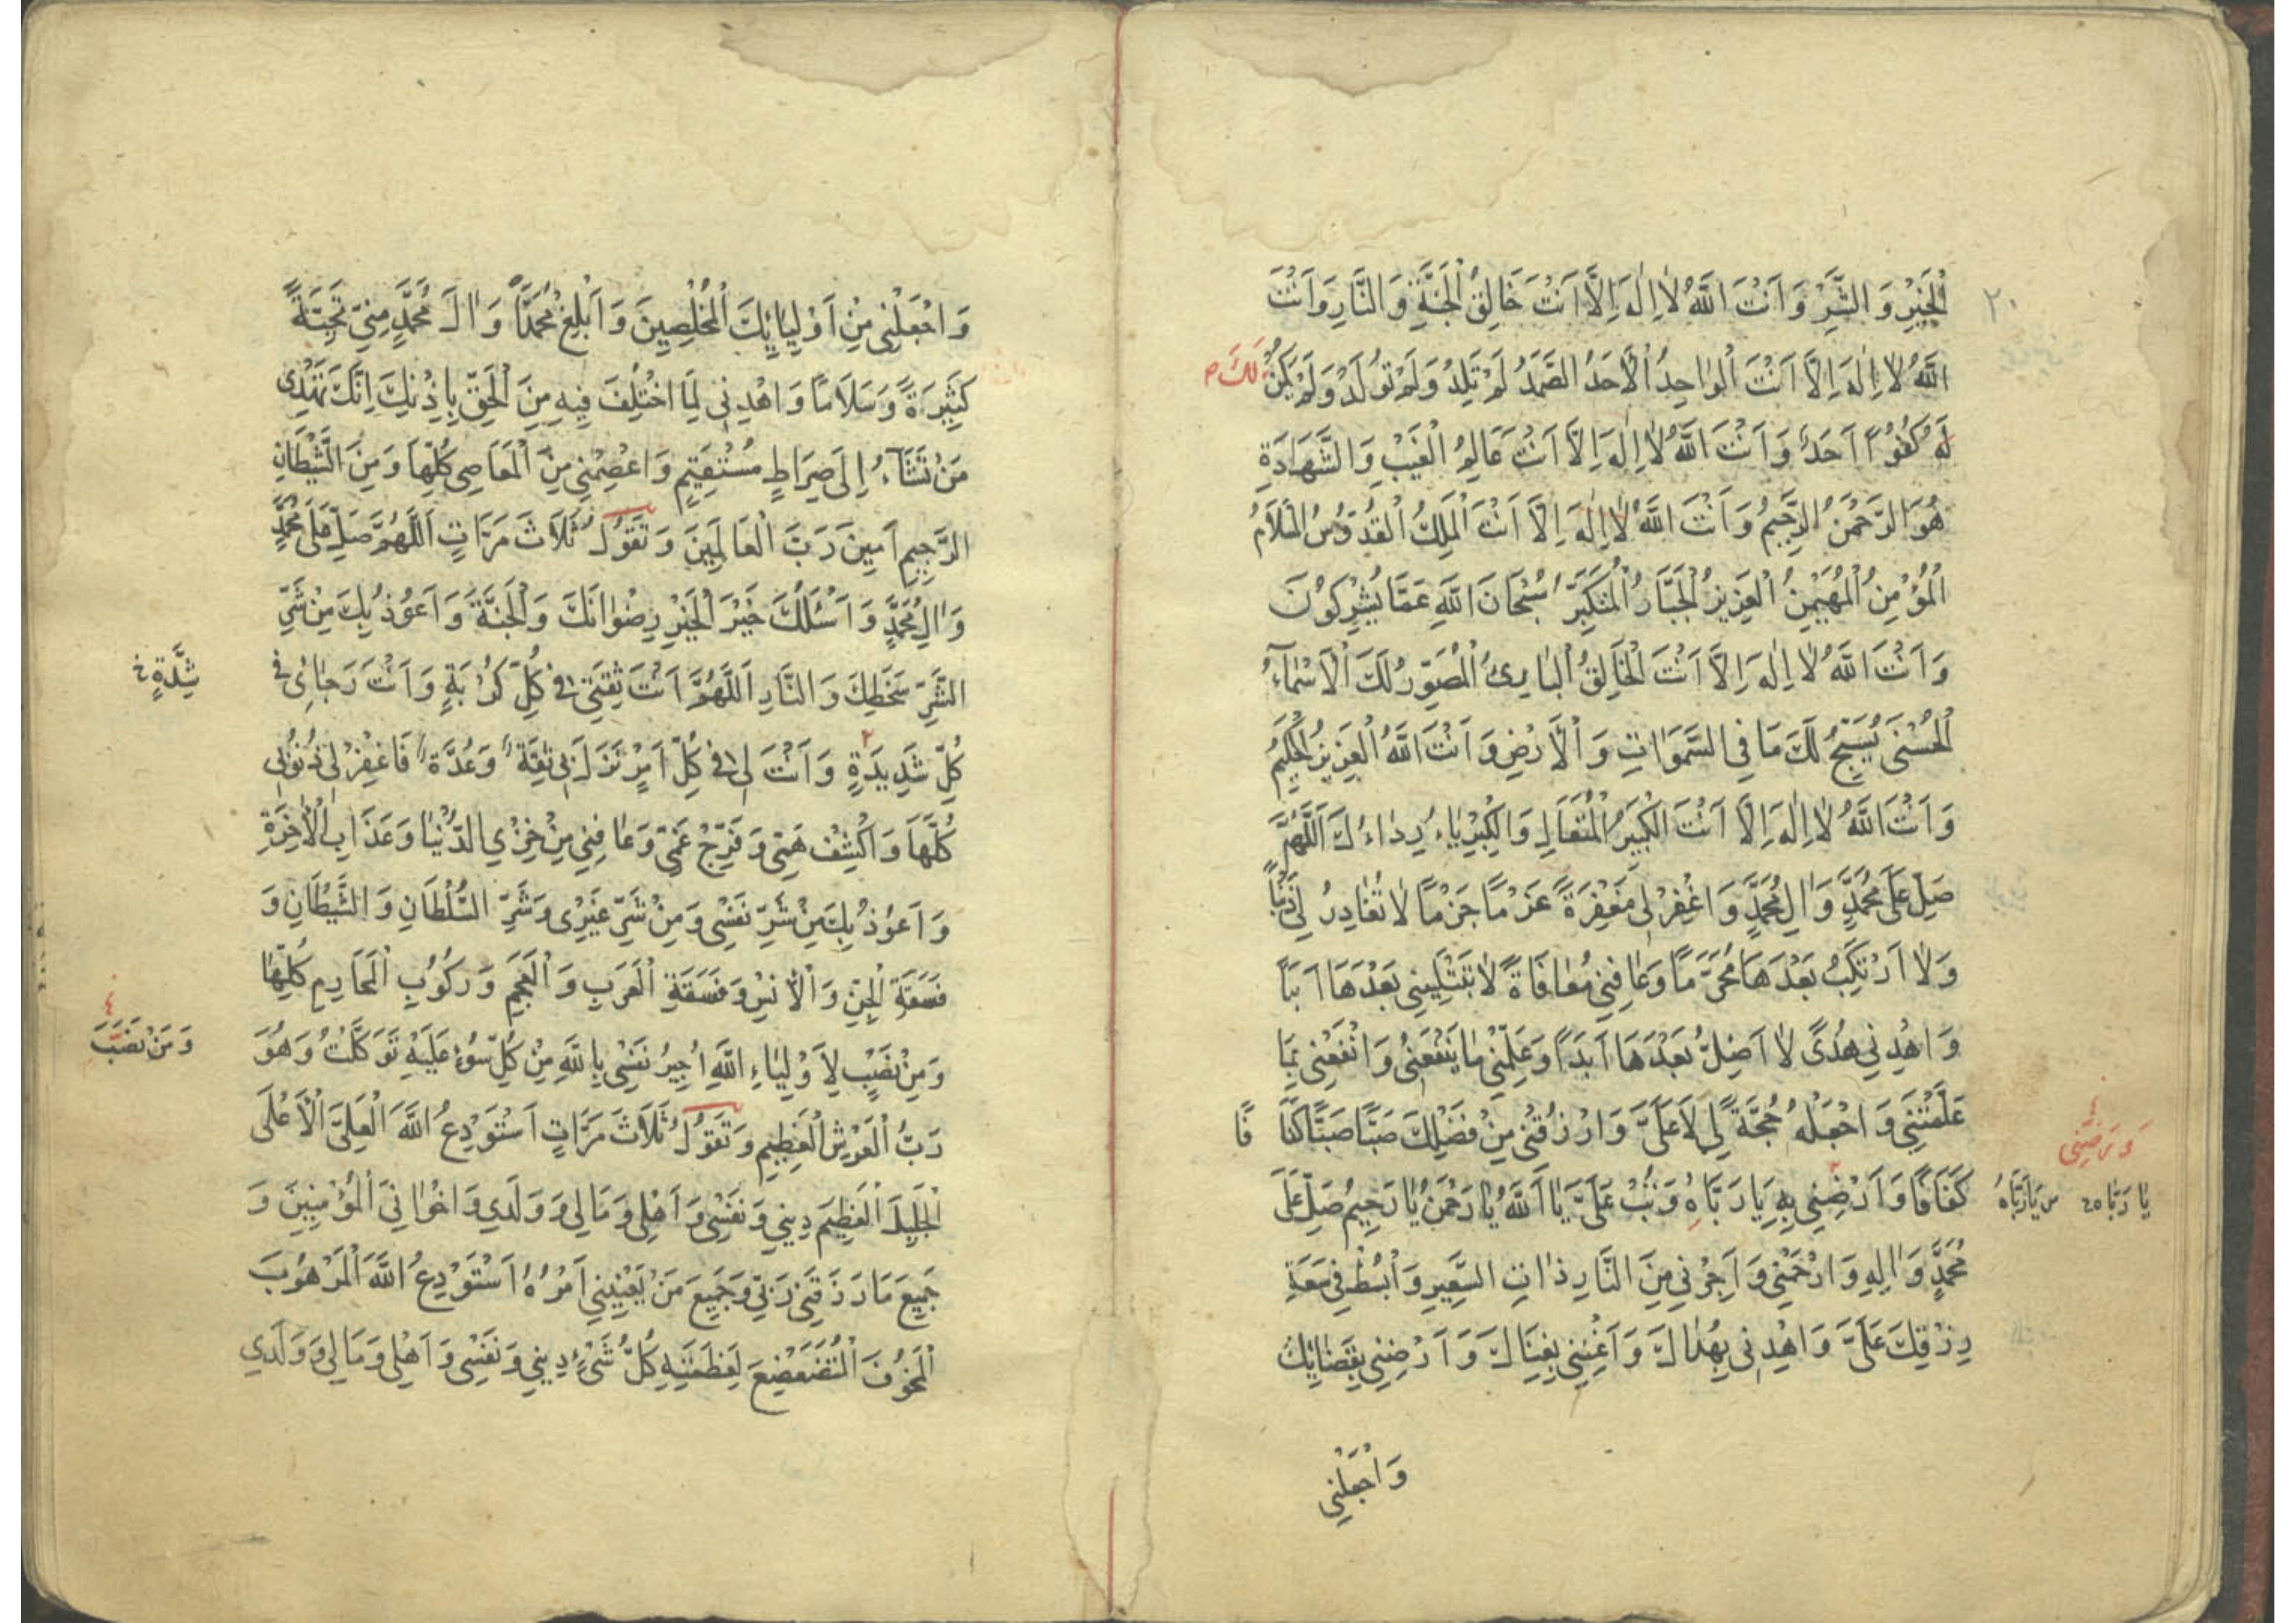 ٢٠
الْخَيْرِ وَالشَّرِّ وَاَنْتَ اللّٰهُ لَا اِلٰهَ اِلَّا اَنْتَ خَالِقُ الْجَنَّةِ وَالنَّارِ وَاَنْتَ
اللّٰهُ لَا اِلٰهَ اِلَّا اَنْتَ الْوٰاحِدُ الْاَحَدُ الصَّمَدُ لَمْ تَلِدْ وَلَمْ تُولَدْ وَلَمْ يَكُنْ
لَكَ
لَهُ كُفُوًا اَحَدٌ وَاَنْتَ اللّٰهُ لَا اِلٰهَ اِلَّا اَنْتَ عَالِمُ الْغَيْبِ وَالشَّهَادَةِ
هُوَ الرَّحْمٰنُ الرَّحِيمُ وَاَنْتَ اللّٰهُ لَا اِلٰهَ اِلَّا اَنْتَ الْمَلِكُ الْقُدُّوسُ السَّلَامُ
الْمُؤْمِنُ الْمُهَيْمِنُ الْعَزِيزُ الْجَبَّارُ الْمُتَكَبِّرُ سُبْحَانَ اللّٰهِ عَمَّا يُشْرِكُونَ
وَاَنْتَ اللّٰهُ لَا اِلٰهَ اِلَّا اَنْتَ الْخَالِقُ الْبٰارِئُ الْمُصَوِّرُ لَكَ الْاَسْمٰآءُ
الْحُسْنَى يُسَبِّحُ لَكَ مَا فِي السَّمَوَاتِ وَالْاَرْضِ وَاَنْتَ اللّٰهُ الْعَزِيزُ الْحَكِيمُ
وَاَنْتَ اللّٰهُ لَا اِلٰهَ اِلَّا اَنْتَ الْكَبِيرُ الْمُتَعَالِ وَالْكِبْرِيٰاءُ رِدٰاءُكَ اَللّٰهُمَّ
صَلِّ عَلَى مُحَمَّدٍ وَاٰلِ مُحَمَّدٍ وَاغْفِرْ لِي مَغْفِرَةً عَزْمًا جَزْمًا لَا تُغٰادِرُ لِي ذَنْبًا
وَلَا اَرْتَكِبُ بَعْدَهَا مُحَرَّمًا وَعٰافِنِي مُعٰافَاةً لَا تَبْتَلِينِي بَعْدَهَا اَبَدًا
وَاهْدِنِي هُدًى لَا اَضِلُّ بَعْدَهَا اَبَدًا وَعَلِّمْنِي مٰا يَنْفَعُنِي وَانْفَعْنِي بِمَا
عَلَّمْتَنِي وَاجْعَلْهُ حُجَّةً لِي لَا عَلَيَّ وَارْزُقْنِي مِنْ فَضْلِكَ صَبًّا صَبًّا كَفَافًا
وَرَضِّنِي
كَفَافًا وَاَرْضِنِي بِهِ يَا رَبَّاهُ وَتُبْ عَلَيَّ يَا اَللّٰهُ يٰا رَحْمَنُ يٰا رَحِيمُ صَلِّ عَلَى
يَا رَبَّاهُ
مُحَمَّدٍ وَاٰلِهِ وَارْحَمْنِي وَاَجِرْنِي مِنَ النَّارِ ذٰاتِ السَّعِيرِ وَابْسُطْ فِي سَعَةِ
رِزْقِكَ عَلَيَّ وَاهْدِنِي بِهُدٰاكَ وَاَغْنِنِي بِغِنَاكَ وَاَرْضِنِي بِقَضٰائِكَ
وَاجْعَلْنِي
وَاجْعَلْنِي مِنْ اَوْلِيٰائِكَ الْمُخْلِصِينَ وَاَبْلِغْ مُحَمَّدًا وَاٰلَ مُحَمَّدٍ مِنِّي تَحِيَّةً
كَثِيرَةً وَسَلَامًا وَاهْدِنِي لِمَا اخْتُلِفَ فِيهِ مِنَ الْحَقِّ بِاِذْنِكَ اِنَّكَ تَهْدِي
مَنْ تَشَآءُ اِلَى صِرَاطٍ مُسْتَقِيمٍ وَاعْصِمْنِي مِنَ الْمَعَاصِي كُلِّهَا وَمِنَ الشَّيْطَانِ
الرَّجِيمِ اٰمِينَ رَبَّ الْعَالَمِينَ وَتَقُولُ ثَلَاثَ مَرَّاتٍ اَللّٰهُمَّ صَلِّ عَلَى مُحَمَّدٍ
وَاٰلِ مُحَمَّدٍ وَاَسْئَلُكَ خَيْرَ الْخَيْرِ رِضْوٰانَكَ وَالْجَنَّةَ وَاَعُوذُ بِكَ مِنْ شَرِّ
الشَّرِّ سَخَطِكَ وَالنَّارِ اَللّٰهُمَّ اَنْتَ ثِقَتِي فِي كُلِّ كُرْبَةٍ وَاَنْتَ رَجٰائِي فِي
شِدَّةٍ خ
كُلِّ شَدِيدَةٍ وَاَنْتَ لِي فِي كُلِّ اَمْرٍ نَزَلَ بِي ثِقَةٌ وَعُدَّةٌ فَاغْفِرْ لِي ذُنُوبِي
كُلَّهَا وَاكْشِفْ هَمِّي وَفَرِّجْ غَمِّي وَعٰافِنِي مِنْ خِزْيِ الدُّنْيٰا وَعَذَابِ الْاٰخِرَةِ
وَاَعُوذُ بِكَ مِنْ شَرِّ نَفْسِي وَمِنْ شَرِّ غَيْرِي وَشَرِّ السُّلْطَانِ وَالشَّيْطَانِ وَ
فَسَقَةِ الْجِنِّ وَالْاِنْسِ وَفَسَقَةِ الْعَرَبِ وَالْعَجَمِ وَرُكُوبِ الْمَحَارِمِ كُلِّهٰا
وَمِنْ نَصْبٍ لِاَوْلِيٰاءِ اللّٰهِ اُجِيرُ نَفْسِي بِاللّٰهِ مِنْ كُلِّ سُوءٍ عَلَيْهِ تَوَكَّلْتُ وَهُوَ
وَمَنْ نَصَبَ
رَبُّ الْعَرْشِ الْعَظِيمِ وَتَقُولُ ثَلَاثَ مَرَّاتٍ اَسْتَوْدِعُ اللّٰهَ الْعَلِيَّ الْاَعْلَى
الْجَلِيلَ الْعَظِيمَ دِينِي وَنَفْسِي وَاَهْلِي وَمَالِي وَوَلَدِي وَاِخْوٰانِيَ الْمُؤْمِنِينَ وَ
جَمِيعَ مَا رَزَقَنِي رَبِّي وَجَمِيعَ مَنْ يَعْنِينِي اَمْرُهُ اَسْتَوْدِعُ اللّٰهَ الْمَرْهُوبَ
الْمَخُوفَ الْمُتَضَعْضِعَ لِعَظَمَتِهِ كُلُّ شَيْءٍ دِينِي وَنَفْسِي وَاَهْلِي وَمَالِي وَوَلَدِي